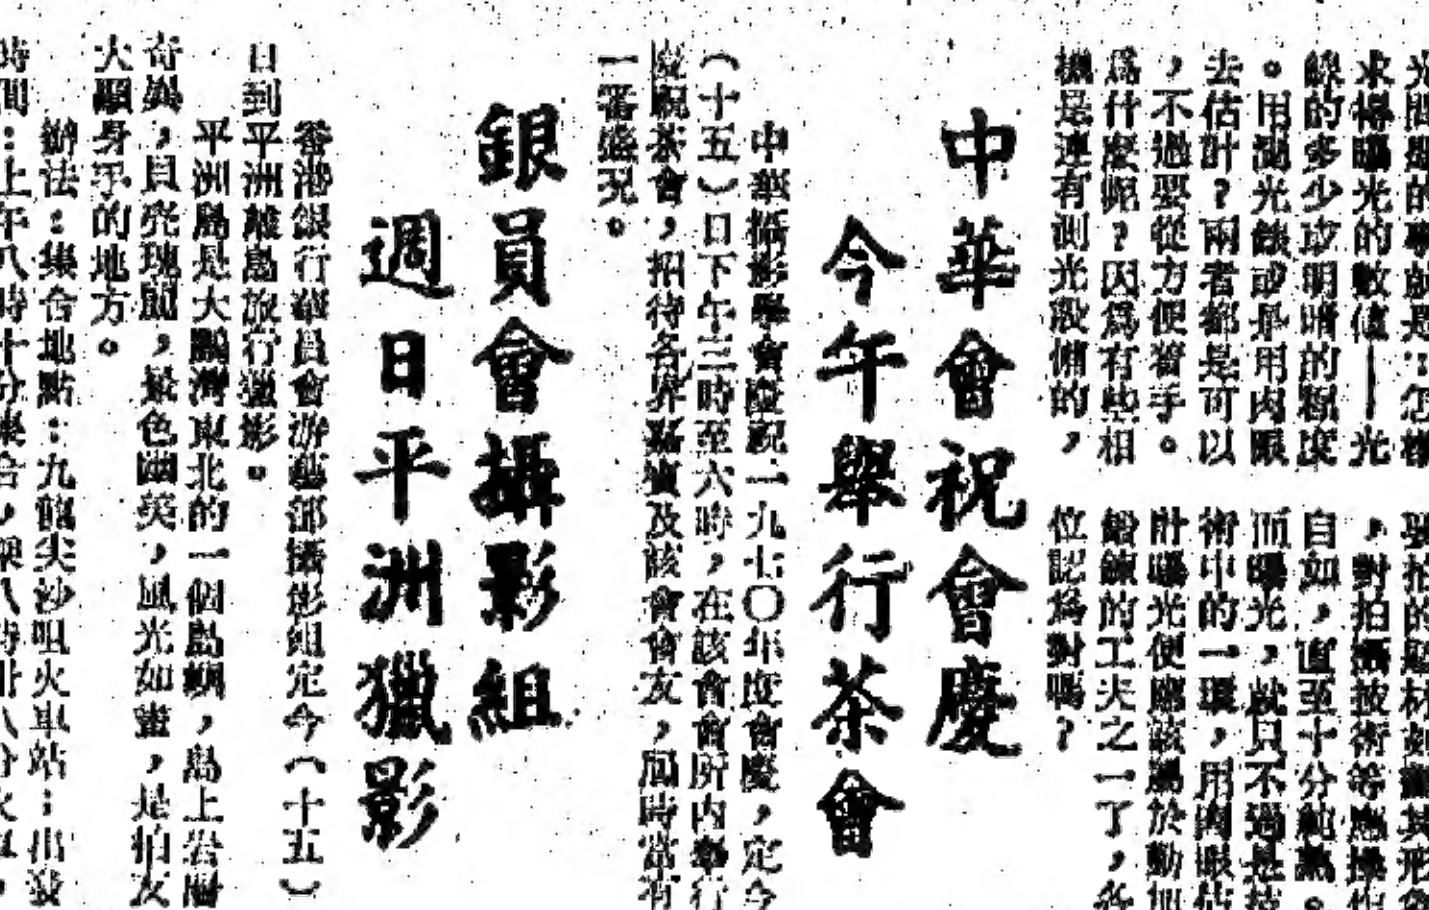 求得曝光的數值——光
線的多少或明暗的程度
。用測光錶或是用肉眼
去估計？兩者都是可以
，不過要從方便着手。
爲什麽呢？因爲有些相
機是連有測光設備的，
，對拍攝技術等應操作
自如，直至十分純熟。
而曝光，就只不過是技
術中的一環，用肉眼估
計曝光便應該屬於勤加
鍛鍊的工夫之一了，各
位認爲對嗎？
中華會祝會慶
今午舉行茶會
中華攝影學會慶祝一九七〇年度會慶，定今
（十五）日下午三時至六時，在該會會所內舉行
慶祝茶會，招待各界嘉賓及該會會友，屆時當有
一番盛況。
銀員會攝影組
週日平洲獵影
香港銀行華員會游藝部攝影組定今（十五）
日到平洲離島旅行獵影。
平洲島是大鵬灣東北的一個島嶼，島上岩層
奇異，貝殼瑰麗，景色幽美，風光如畫，是拍友
大顯身手的地方。
辦法：集合地點：九龍尖沙咀火車站；出發
時間：上午八時十分集合，